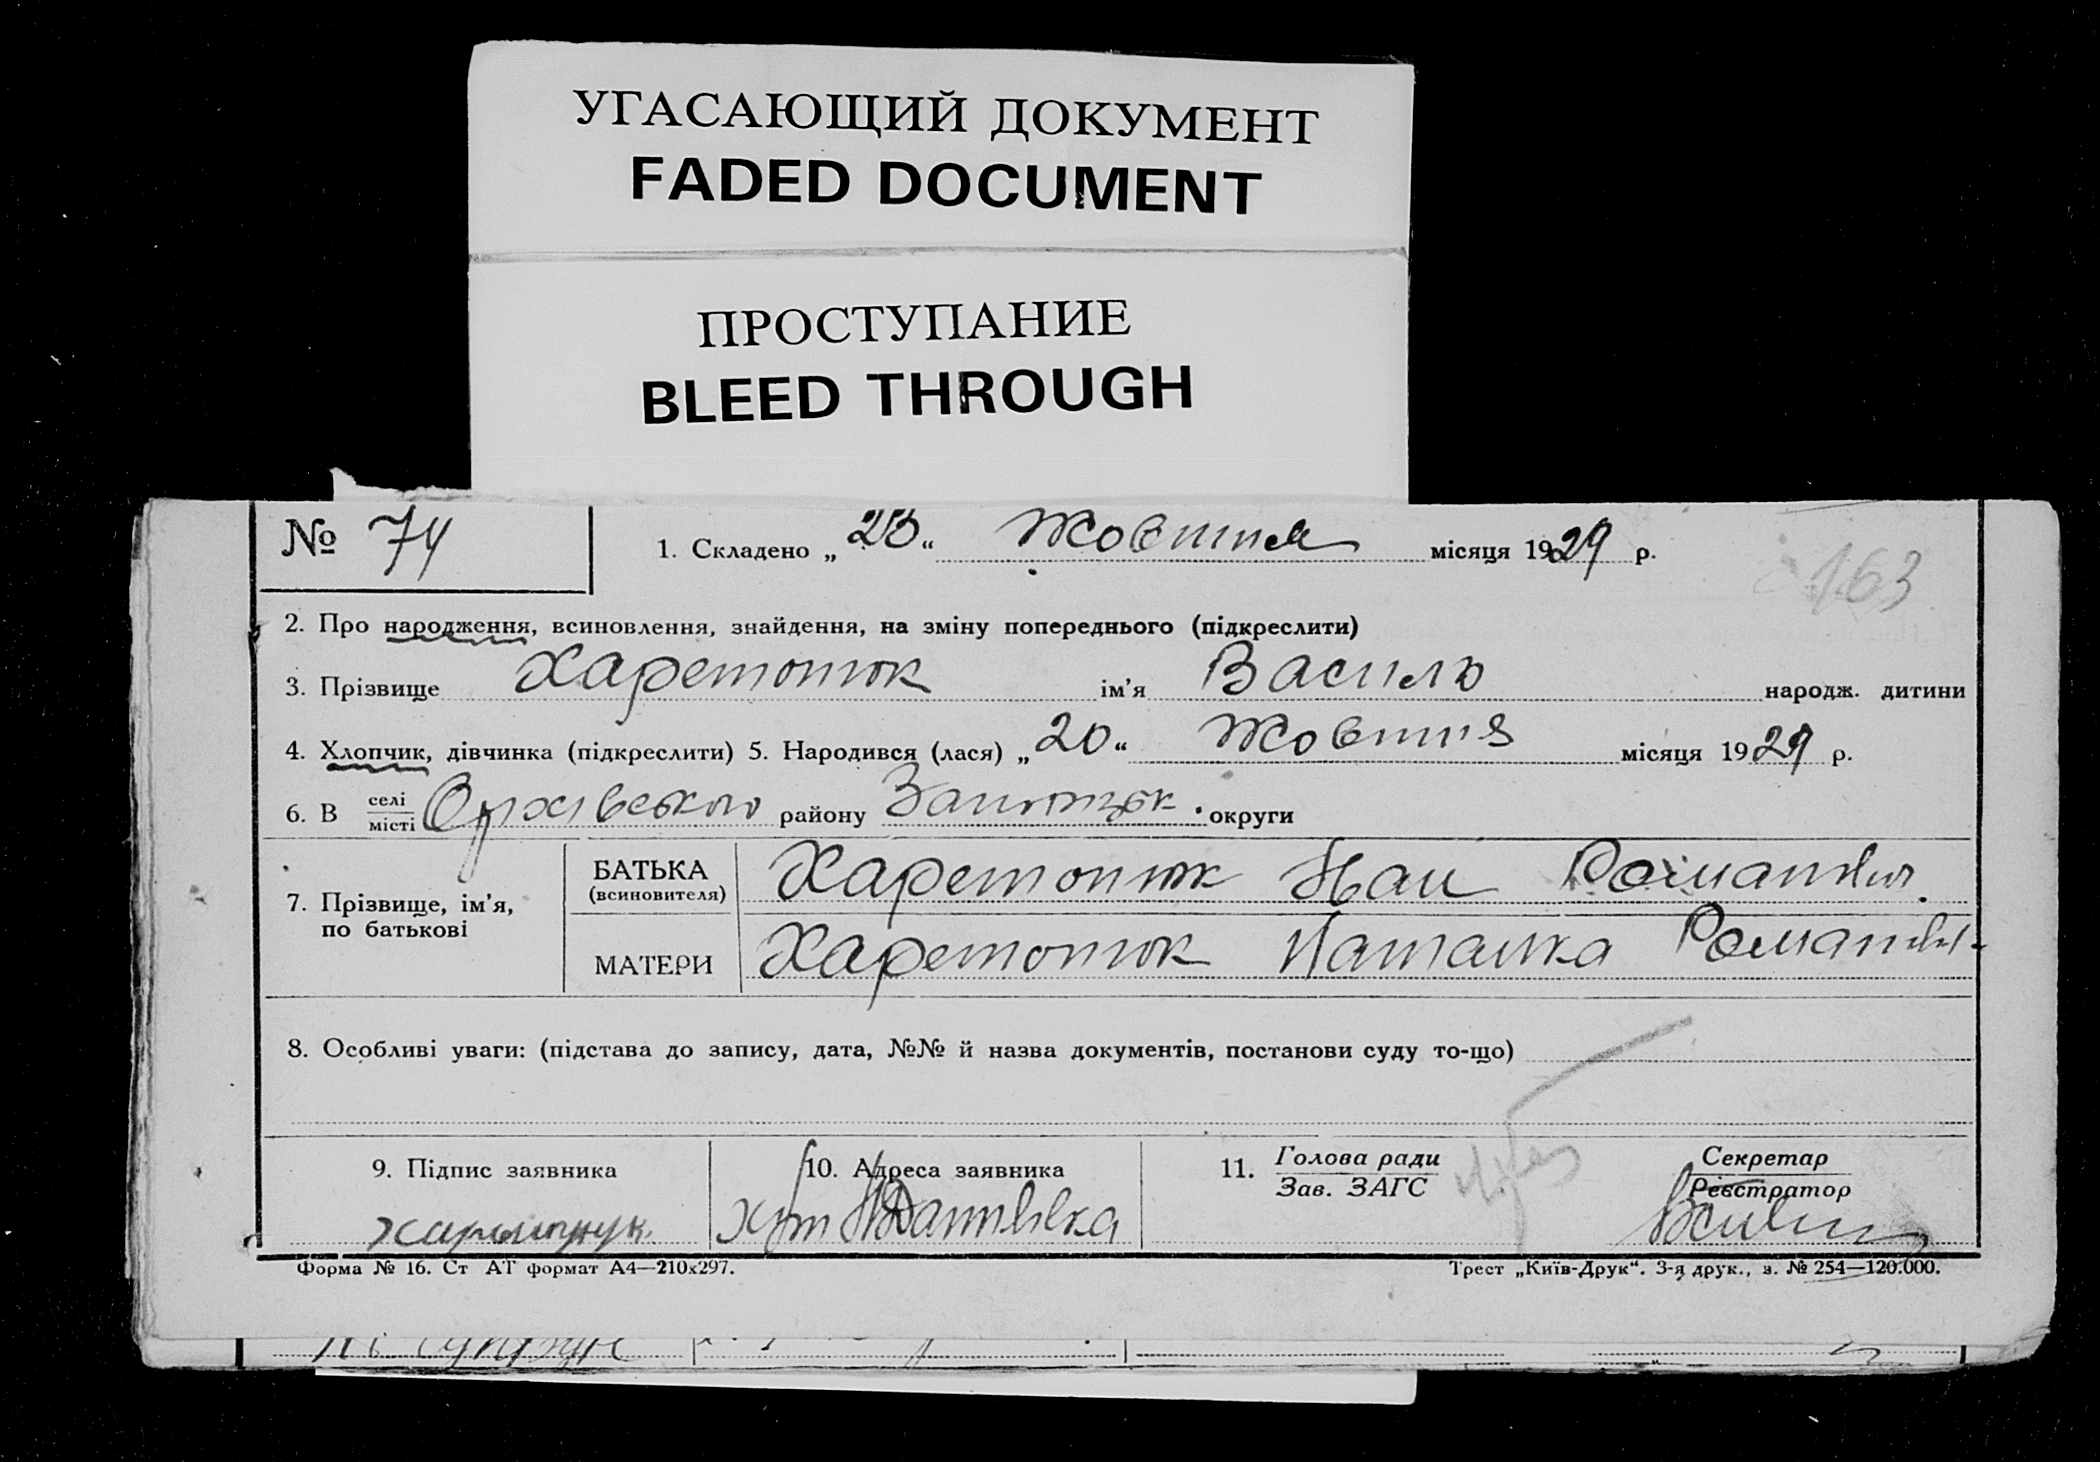 УГАСАЮЩИЙ ДОКУМЕНТ
FADED DOCUMENT
ПРОСТУПАНИЕ
BLEED THROUGH
№ 74
1. Складено „23“ Жовтня місяця 1929 р.
163
2. Про народження, всиновлення, знайдення, на зміну попереднього (підкреслити)
3. Прізвище Харетонюк ім’я Василь народж. дитини
4. Хлопчик, дівчинка (підкреслити) 5. Народився (лася) „20“ Жовтня місяця 1929 р.
6. В селі місті Оріхівського району Запорізьк. округи
7. Прізвище, ім’я, по батькові
БАТЬКА (всиновителя) Харетонюк Іван Романович
МАТЕРИ Харетонюк Наталка Романівн
8. Особливі уваги: (підстава до запису, дата, №№ й назва документів, постанови суду то-що)
9. Підпис заявника
10. Адреса заявника
11. Голова ради Зав. ЗАГС
Секретар Реєстратор
хут
Форма № 16. Ст АТ формат А4—210х297.
Трест „Київ-Друк“. 3-я друк., з. № 254—120.000.